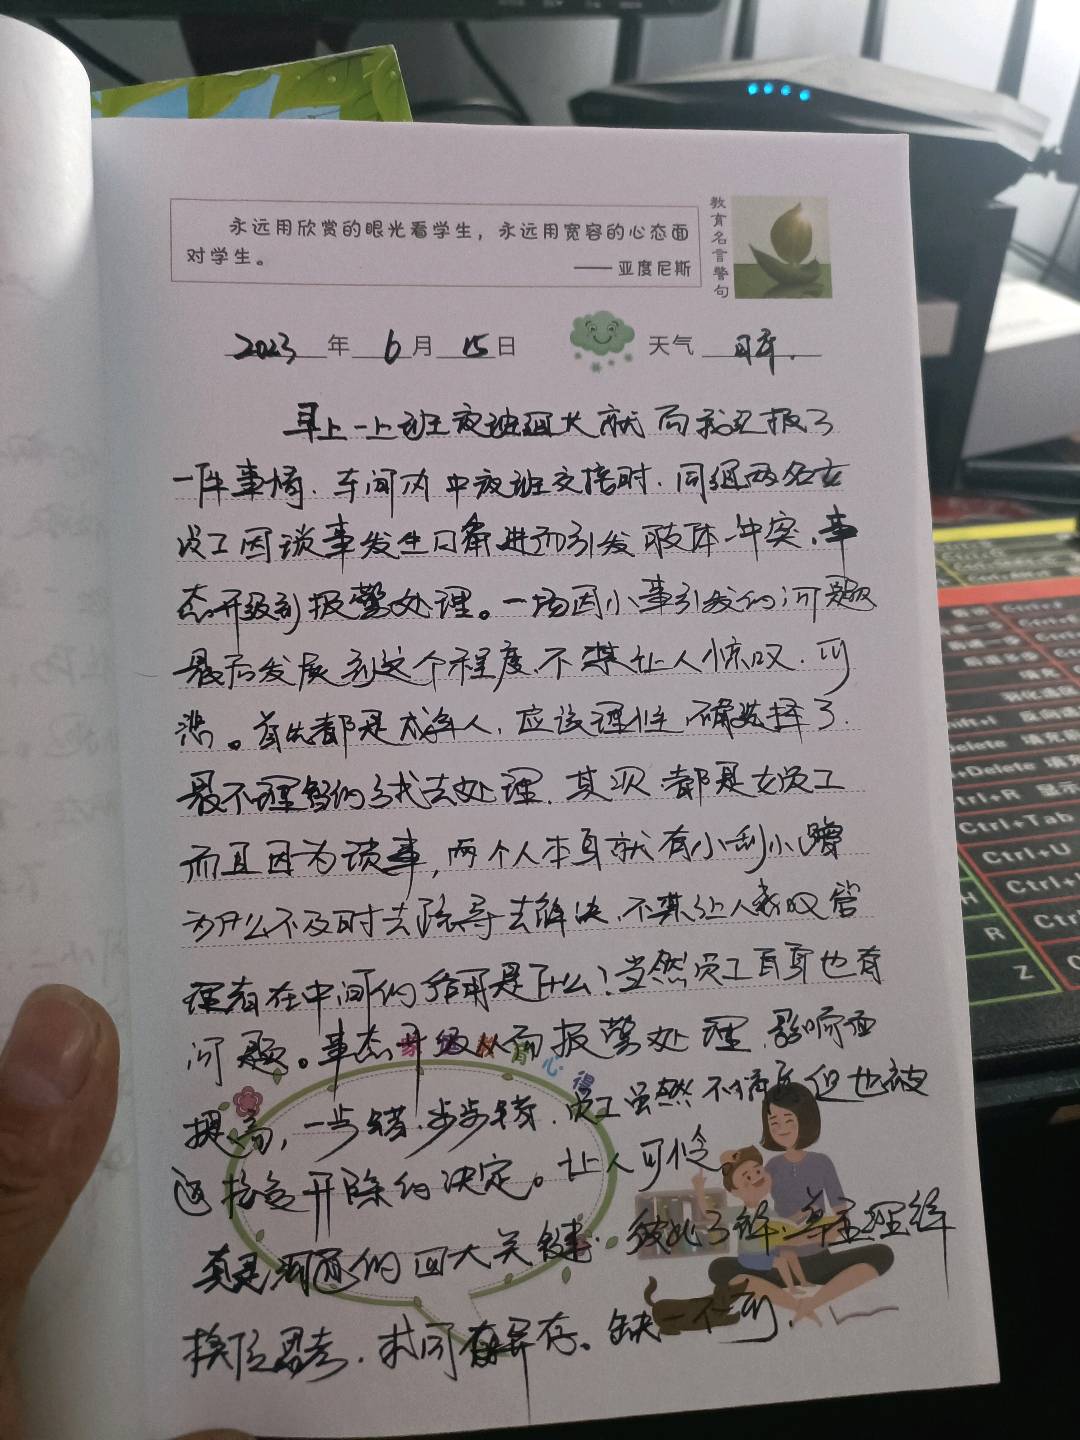 永远用欣赏的眼光看学生，永远用宽容的心态面
对学生。
—— 亚度尼斯
教育名言警句
2023年6月15日 天气 晴.
早上一上班夜班组长就向我汇报了
一件事情.车间内中夜班交接时.同组两名女
员工因琐事发生口角进而引发肢体冲突，事
态升级到报警处理。一场因小事引发的问题
最后发展到这个程度.不禁让人惊叹.可
悲。首先都是成年人，应该理性.确选择了
最不理智的方式去处理.其次都是女员工
而且因为琐事，两个人本身就有小刮小蹭
为什么不及时去疏导去解决.不禁让人感叹管
理者在中间的作用是什么！当然员工自身也有
问题。事态升级从而报警处理.影响面
提高，一步错.步步错.员工虽然不情愿但也被
迫接受开除的决定。让人可惜
真是沟通的四大关键.彼此了解.尊重理解
换位思考.求同存异存。缺一不可.
育心得
Delete
Ctrl+R 显示
Ctrl+Tab
Ctrl+U
H
R
Z